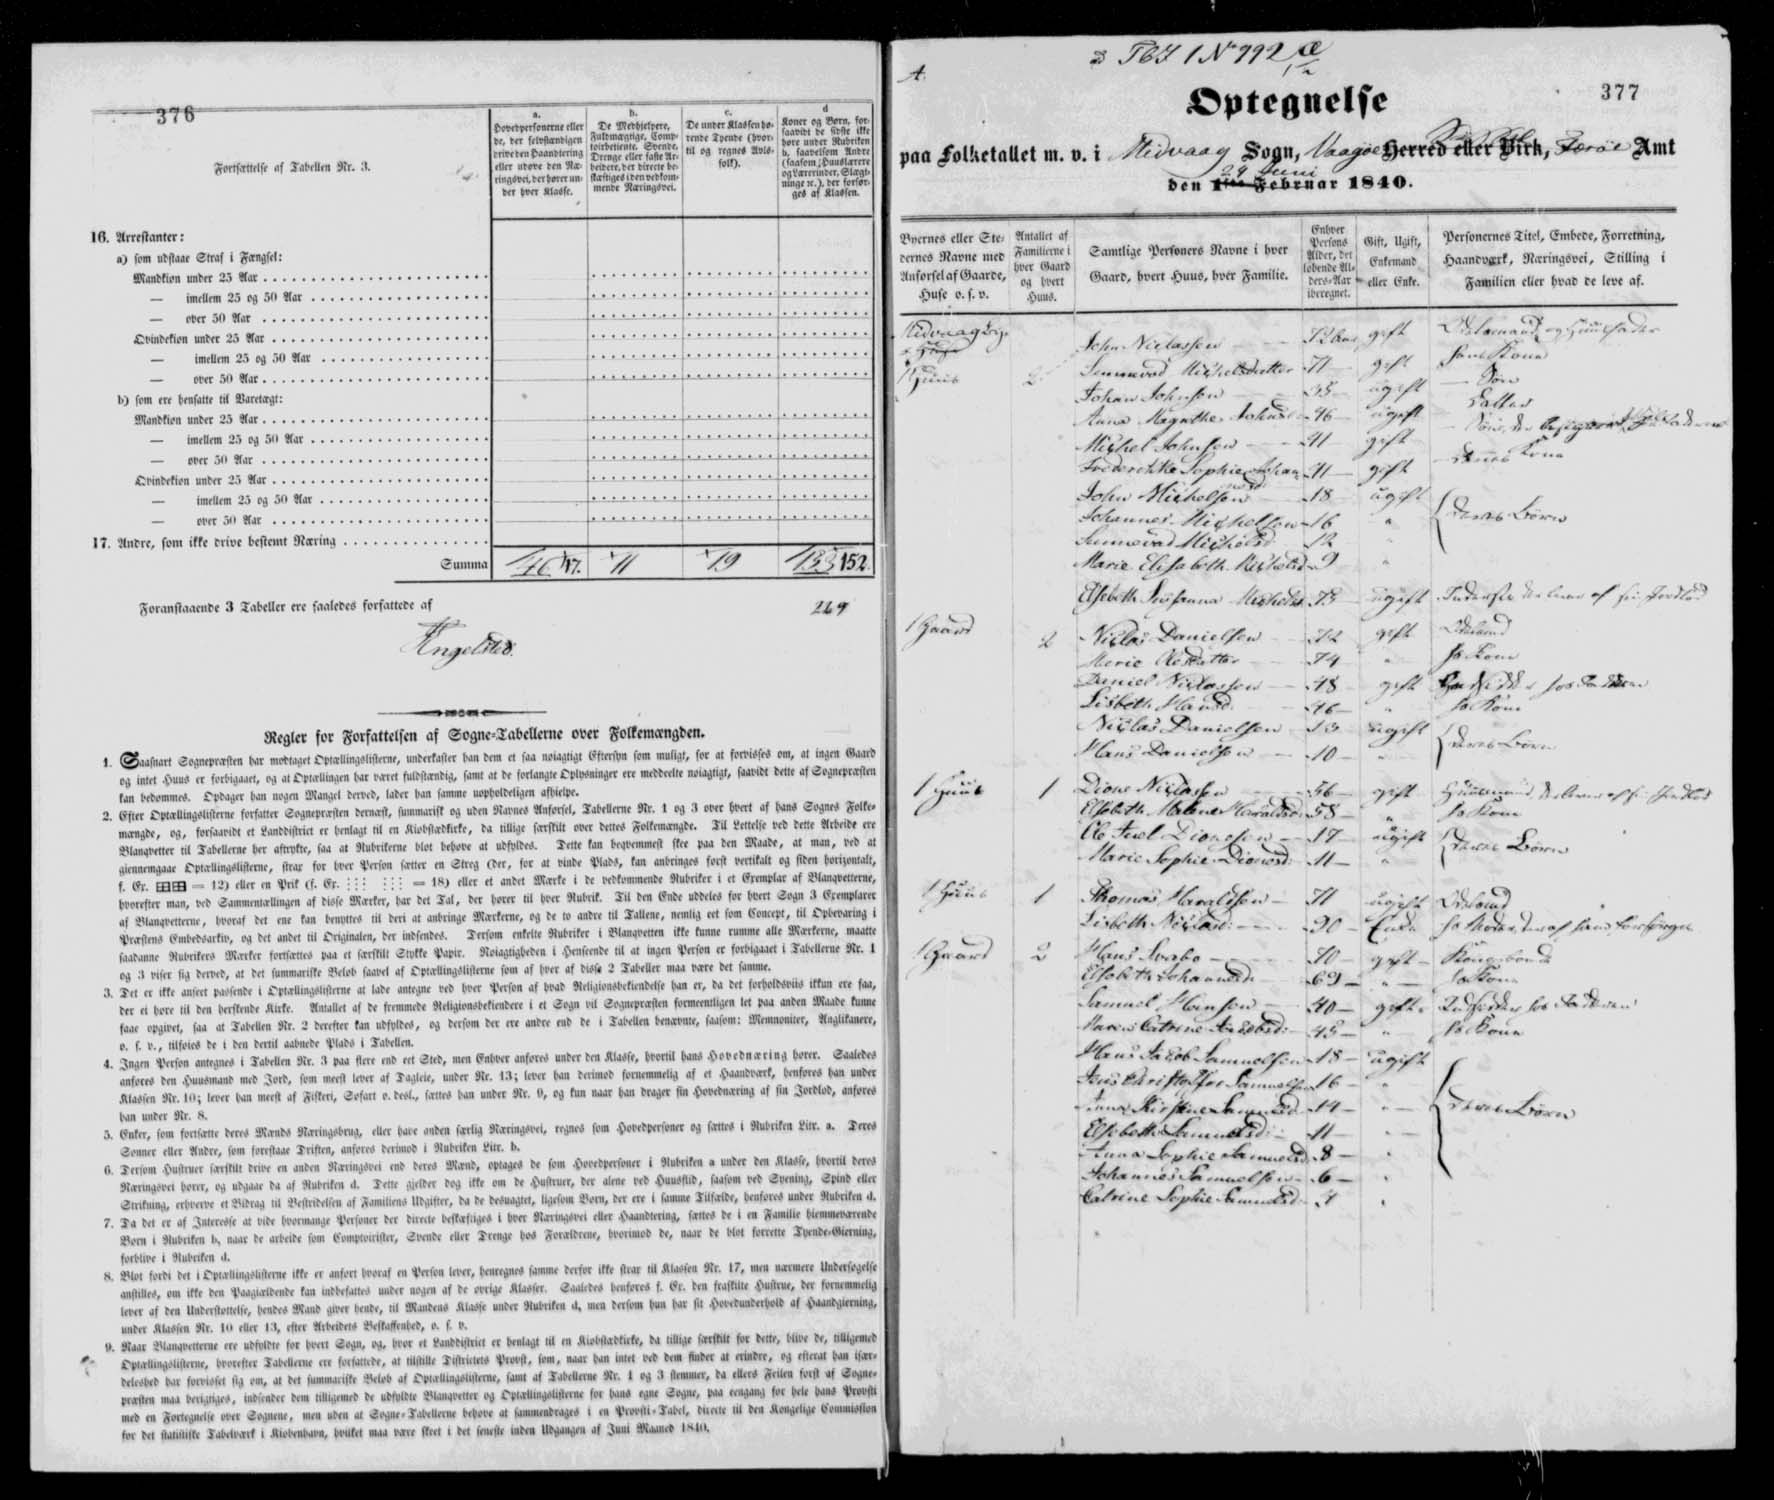 376
Fortsættelse af Tabellen Nr. 3.
a.
Hovedpersonerne eller de, der selvstændigen drive den Haandtering eller udøve den Næringsvei, der hører under hver Klasse.
b.
De Medhjelpere, Fuldmægtige, Comptoirbetiente, Svende, Drenge eller faste Arbeidere, der directe beskæftiges i den vedkommende Næringsvei.
c.
De under Klassen hørende Tyende (hvortil og regnes Avlsfolk).
d
Koner og Børn, forsaavidt de sidste ikke høre under Rubriken b, saavelsom Andre (saasom Huuslærere og Lærerinder, Slægtninge ɾc.), der forsørges af Klassen.
16. Arrestanter:
a) som udstaae Straf i Fængsel:
Mandkiøn under 25 Aar
— imellem 25 og 50 Aar
— over 50 Aar
Qvindekiøn under 25 Aar
— imellem 25 og 50 Aar
— over 50 Aar
b) som ere hensatte til Varetægt:
Mandkiøn under 25 Aar
— imellem 25 og 50 Aar
— over 50 Aar
Qvindekiøn under 25 Aar
— imellem 25 og 50 Aar
— over 50 Aar
17. Andre, som ikke drive bestemt Næring
Summa 46 47. 11 19 133 152.
Foranstaaende 3 Tabeller ere saaledes forfattede af
269
Engelsted.
Regler for Forfattelsen af Sogne-Tabellerne over Folkemængden.
1. Saasnart Sognepræsten har modtaget Optællingslisterne, underkaster han dem et saa nøiagtigt Eftersyn som muligt, for at forvisses om, at ingen Gaard
og intet Huus er forbigaaet, og at Optællingen har været fuldstændig, samt at de forlangte Oplysninger ere meddeelte nøiagtigt, saavidt dette af Sognepræsten
kan bedømmes. Opdager han nogen Mangel derved, lader han samme uopholdeligen afhielpe.
2. Efter Optællingslisterne forfatter Sognepræsten dernæst, summarisk og uden Navnes Anførsel, Tabellerne Nr. 1 og 3 over hvert af hans Sognes Folke-
mængde, og, forsaavidt et Landdistrict er henlagt til en Kiøbstædkirke, da tillige særskilt over dettes Folkemængde. Til Lettelse ved dette Arbeide ere
Blanqvetter til Tabellerne her aftrykte, saa at Rubrikerne blot behøve at udfyldes. Dette kan beqvemmest skee paa den Maade, at man, ved at
giennemgaae Optællingslisterne, strax for hver Person sætter en Streg (der, for at vinde Plads, kan anbringes først vertikalt og siden horizontalt,
f. Ex. = 12) eller en Prik (f. Ex. = 18) eller et andet Mærke i de vedkommende Rubriker i et Exemplar af Blanqvetterne,
hvorefter man, ved Sammentællingen af disse Mærker, har det Tal, der hører til hver Rubrik. Til den Ende uddeles for hvert Sogn 3 Exemplarer
af Blanqvetterne, hvoraf det ene kan benyttes til deri at anbringe Mærkerne, og de to andre til Tallene, nemlig eet som Concept, til Opbevaring i
Præstens Embedsarkiv, og det andet til Originalen, der indsendes. Dersom enkelte Rubriker i Blanqvetten ikke kunne rumme alle Mærkerne, maatte
saadanne Rubrikers Mærker fortsættes paa et særskilt Stykke Papir. Nøiagtigheden i Henseende til at ingen Person er forbigaaet i Tabellerne Nr. 1
og 3 viser sig derved, at det summariske Beløb saavel af Optællingslisterne som af hver af disse 2 Tabeller maa være det samme.
3. Det er ikke anseet passende i Optællingslisterne at lade antegne ved hver Person af hvad Religionsbekiendelse han er, da det forholdsviis ikkun ere faa,
der ei høre til den herskende Kirke. Antallet af de fremmede Religionsbekiendere i et Sogn vil Sognepræsten formeentligen let paa anden Maade kunne
faae opgivet, saa at Tabellen Nr. 2 derefter kan udfyldes, og dersom der ere andre end de i Tabellen benævnte, saasom: Memnoniter, Anglikanere,
o. s. v., tilføies de i den dertil aabnede Plads i Tabellen.
4. Ingen Person antegnes i Tabellen Nr. 3 paa flere end eet Sted, men Enhver anføres under den Klasse, hvortil hans Hovednæring hører. Saaledes
anføres den Huusmand med Jord, som meest lever af Dagleie, under Nr. 13; lever han derimod fornemmelig af et Haandværk, henføres han under
Klassen Nr. 10; lever han meest af Fiskeri, Søfart o. desl., sættes han under Nr. 9, og kun naar han drager sin Hovednæring af sin Jordlod, anføres
han under Nr. 8.
5. Enker, som fortsætte deres Mænds Næringsbrug, eller have anden særlig Næringsvei, regnes som Hovedpersoner og sættes i Rubriken Litr. a. Deres
Sønner eller Andre, som forestaae Driften, anføres derimod i Rubriken Litr. b.
6. Dersom Hustruer særskilt drive en anden Næringsvei end deres Mænd, optages de som Hovedpersoner i Rubriken a under den Klasse, hvortil deres
Næringsvei hører, og udgaae da af Rubriken d. Dette gjelder dog ikke om de Hustruer, der alene ved Huusflid, saasom ved Syening, Spind eller
Strikning, erhverve et Bidrag til Bestridelsen af Familiens Udgifter, da de desuagtet, ligesom Børn, der ere i samme Tilfælde, henføres under Rubriken d.
7. Da det er af Interesse at vide hvormange Personer der directe beskæftiges i hver Næringsvei eller Haandtering, sættes de i en Familie hiemmeværende
Børn i Rubriken b, naar de arbeide som Comptoirister, Svende eller Drenge hos Forældrene, hvorimod de, naar de blot forrette Tyende-Gierning,
forblive i Rubriken d.
8. Blot fordi det i Optællingslisterne ikke er anført hvoraf en Person lever, henregnes samme derfor ikke strax til Klassen Nr. 17, men nærmere Undersøgelse
anstilles, om ikke den Paagiældende kan indbefattes under nogen af de øvrige Klasser. Saaledes henføres f. Ex. den fraskilte Hustrue, der fornemmelig
lever af den Understøttelse, hendes Mand giver hende, til Mandens Klasse under Rubriken d, men dersom hun har sit Hovedunderhold af Haandgierning,
under Klassen Nr. 10 eller 13, efter Arbeidets Beskaffenhed, o. s. v.
9. Naar Blanqvetterne ere udfyldte for hvert Sogn, og, hvor et Landdistrict er henlagt til en Kiøbstædkirke, da tillige særskilt for dette, blive de, tilligemed
Optællingslisterne, hvorefter Tabellerne ere forfattede, at tilstille Districtets Provst, som, naar han intet ved dem finder at erindre, og efterat han især-
deleshed har forvisset sig om, at det summariske Beløb af Optællingslisterne, samt af Tabellerne Nr. 1 og 3 stemmer, da ellers Feilen først af Sogne-
præsten maa berigtiges, indsender dem tilligemed de udfyldte Blanqvetter og Optællingslisterne for hans egne Sogne, paa eengang for hele hans Provsti
med en Fortegnelse over Sognene, men uden at Sogne-Tabellerne behøve at sammendrages i en Provsti-Tabel, directe til den Kongelige Commission
for det statistiske Tabelværk i Kiøbenhavn, hvilket maa være skeet i det seneste inden Udgangen af Juni Maaned 1840.
A.
377
Optegnelse
paa Folketallet m. v. i Midvaag Sogn, Vaagøe Herred eller Birk, Færøe Amt
29 Juni
den 1ste Februar 1840.
Byernes eller Stedernes Navne med Anførsel af Gaarde, Huse o. s. v.
Antallet af Familierne i hver Gaard og hvert Huus.
Samtlige Personers Navne i hver Gaard, hvert Huus, hver Familie.
Enhver Persons Alder, det løbende Alders-Aar iberegnet.
Gift, Ugift, Enkemand eller Enke.
Personernes Titel, Embede, Forretning, Haandværk, Næringsvei, Stilling i Familien eller hvad de leve af.
John Niclassen 72 Aar gift
1 Huus 2 Sunnevod Michelsdatter 71 gift hans Kone
Johan Johnsen 35 ugift — Søn
Anna Magrethe 46 ugift Datter
Michel Johnsen 41 gift
Frederikke Sophie 41 gift — Dennes Kone
John Michelsen 18 ugift
Johannes Michelsen 16 " Deres Børn
Sunnevod Michelsd 12 "
Marie Elisabeth Michelsd 9 "
Elsebeth Susanna ugift
1 Gaard 2 Niclas Danielsen 72 gift
Marie Olesdatter 74 " hs Kone
Daniel Niclassen 48 gift
Lisbeth Hansd 46 " hs Kone
Niclas Danielsen 13 ugift Deres Børn
Hans Danielsen 10 "
1 Huus 1 Dione Niclassen 56 gift
Elsebeth Malene Haraldsd 58 " hs Kone
Ole Juel Dionesen 17 ugift Deres Børn
Marie Sophie Dionesd 11 "
1 Huus 1 Thomas Haraldsen 71 ugift
Lisbeth Niclasd 90 Enke
1 Gaard 2 Hans Svabo 70 gift Kongsbonde
Elsebeth Johannesd 69 " hs Kone
Samuel Hansen 40 gift
Maren Catrine Jacobsd 45 " hs Kone
Hans Jacob Samuelsen 18 ugift
Jens Christopher Samuelsen 16 "
Anna Kirstine Samuelsd 14 " Deres Børn
Elsebeth Samuelsd 11 "
Anna Sophie Samuelsd 8 "
Johannes Samuelsen 6 "
Catrine Sophie Samuelsd 4 "